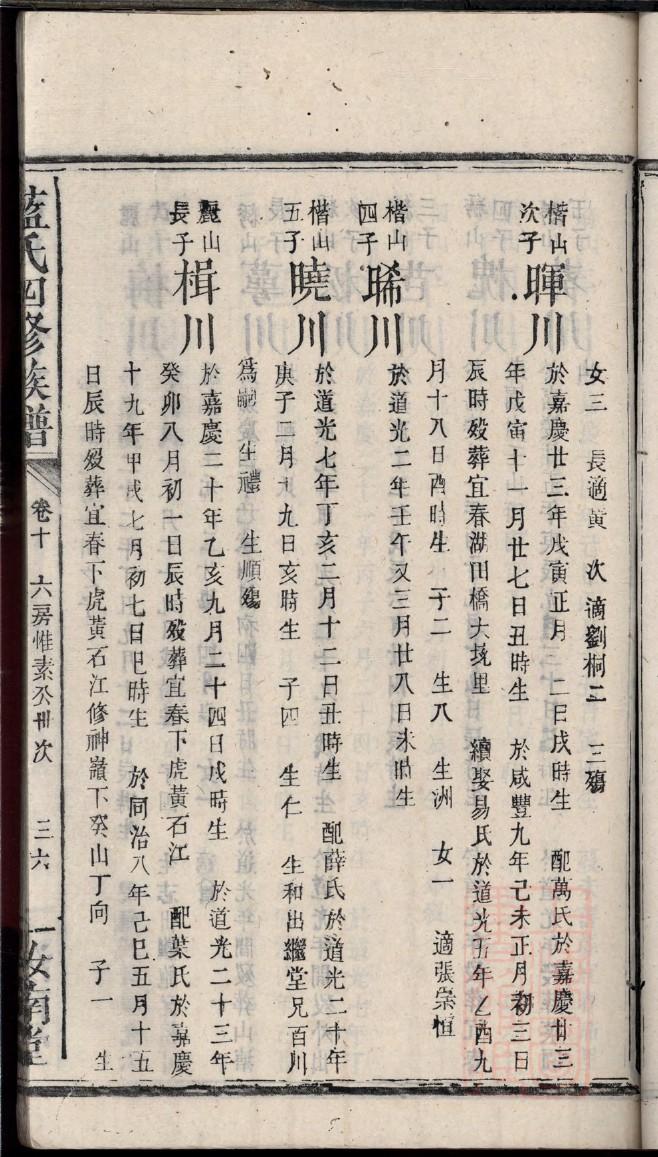 女三 長適黃 次適劉桐二 三殤
楷山次子暉川 於嘉慶廿三年戊寅正月 二日戌時生 配萬氏於嘉慶廿三
年戊寅十一月廿七日丑時生 於咸豐九年己未正月初三日
辰時歿葬宜春湖田橋大塊里 續娶易氏於道光五年乙酉九
月十八日酉時生 子二 生八 生洲 女一 適張崇恒
楷山四子晞川 於道光二年壬午又三月廿八日未時生
楷山五子曉川 於道光七年丁亥二月十二日丑時生 配薛氏於道光二十年
庚子二月十九日亥時生 子四 生仁 生和出繼堂兄百川
為嗣 生禮 生順殤
麗山長子楫川 於嘉慶二十年乙亥九月二十四日戌時生 於道光二十三年
癸卯八月初一日辰時歿葬宜春下虎黃石江 配葉氏於嘉慶
十九年甲戌七月初七日巳時生 於同治八年己巳五月十五
日辰時歿葬宜春下虎黃石江修神嶺下癸山丁向 子一 生
藍氏四修族譜 卷十 六房惟素公世次 三六 汝南堂